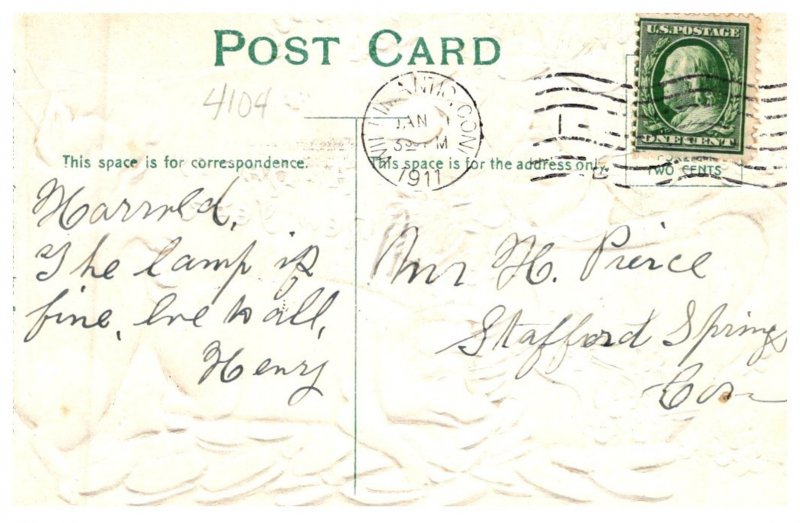 POST CARD
4104
WILLIMANTIC, CON
JAN 1
3 PM
1911
U.S. POSTAGE
ONE CENT
TWO CENTS
This space is for correspondence.
This space is for the address only.
Harrold,
The lamp is
fine, love to all,
Henry
Mr H. Pierce
Stafford Springs
Con